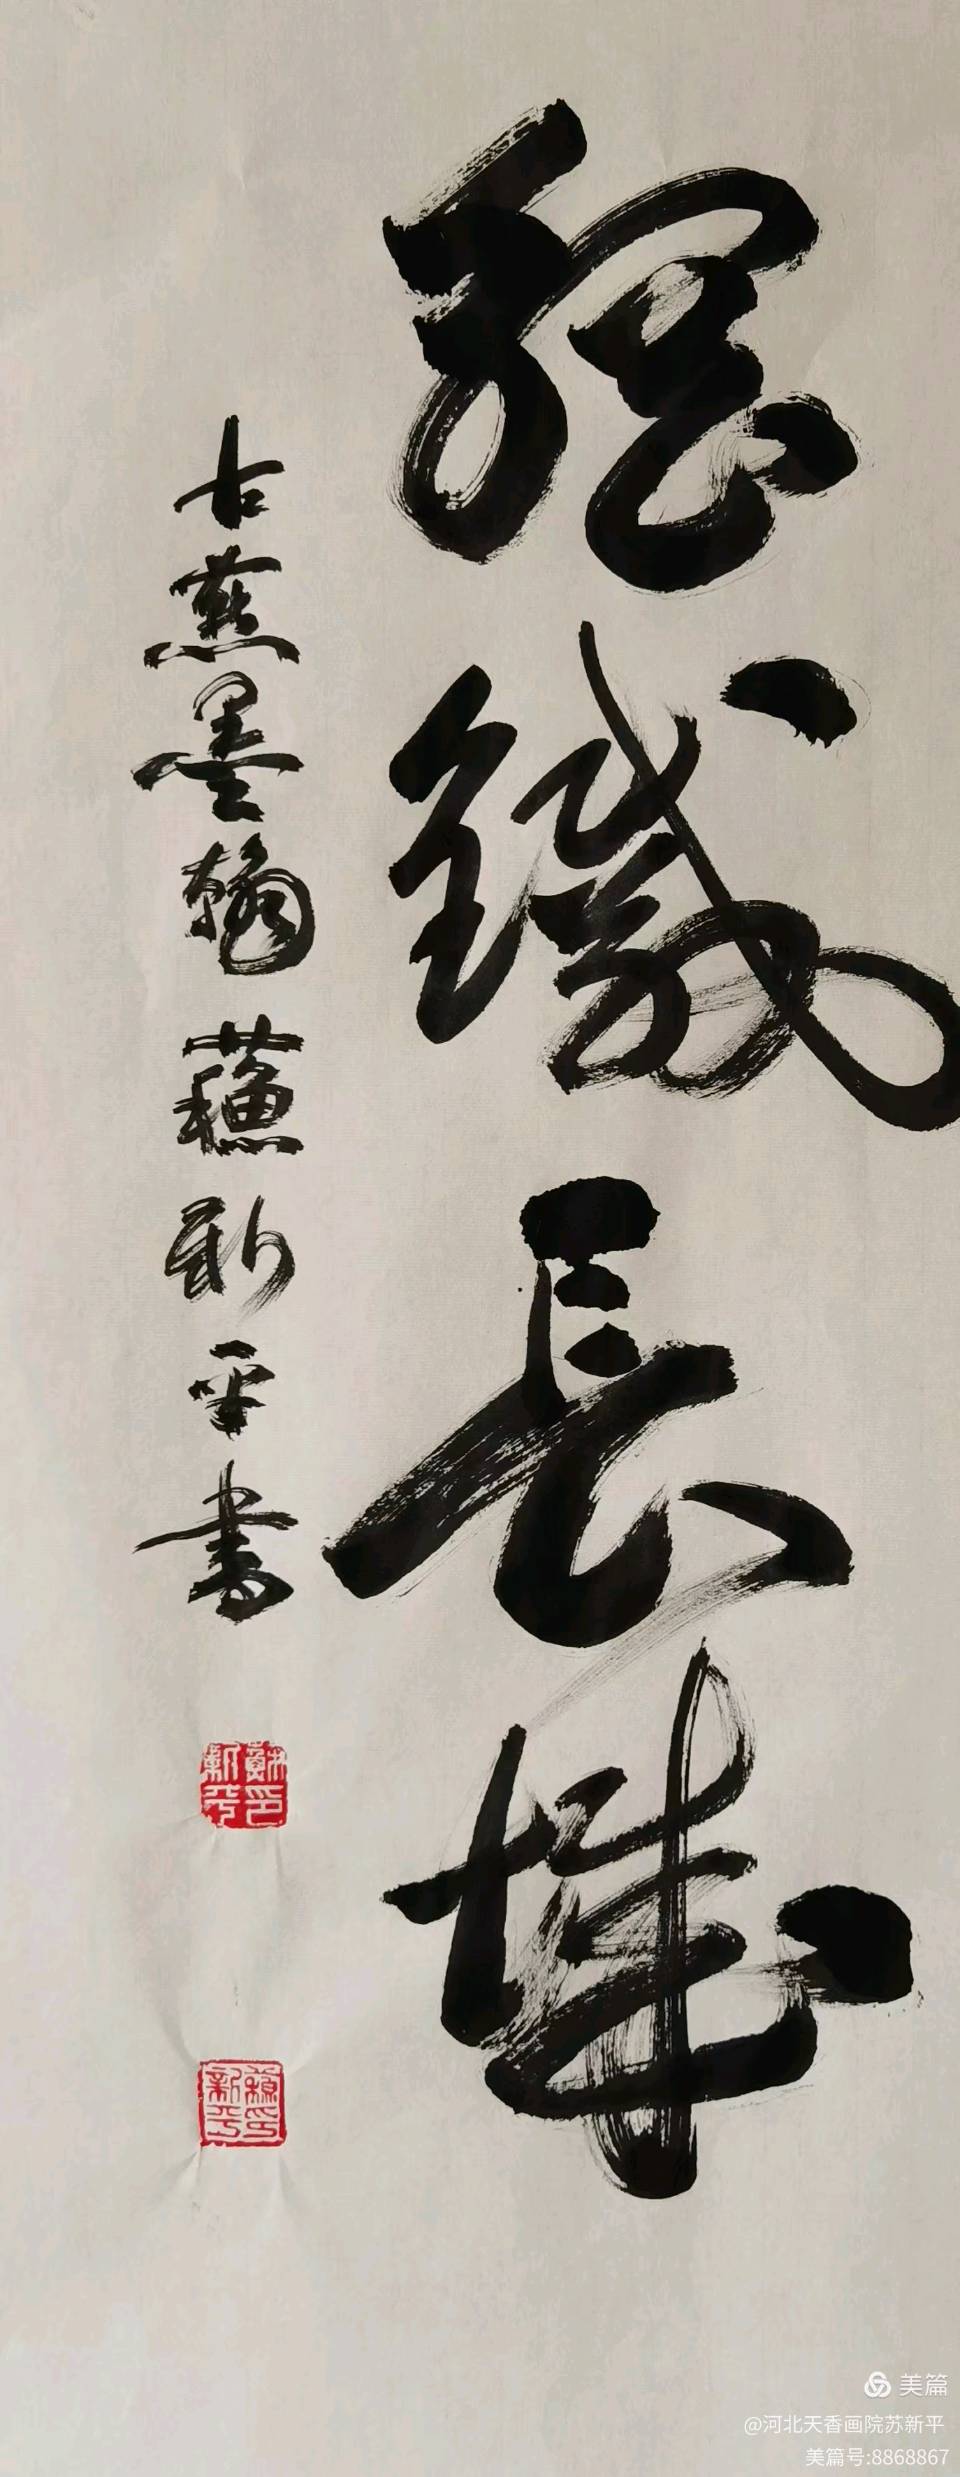 鋼鐵長城
古燕墨翰蘓新平書
蘇印新平
美篇
@河北天香画院苏新平
美篇号:8868867